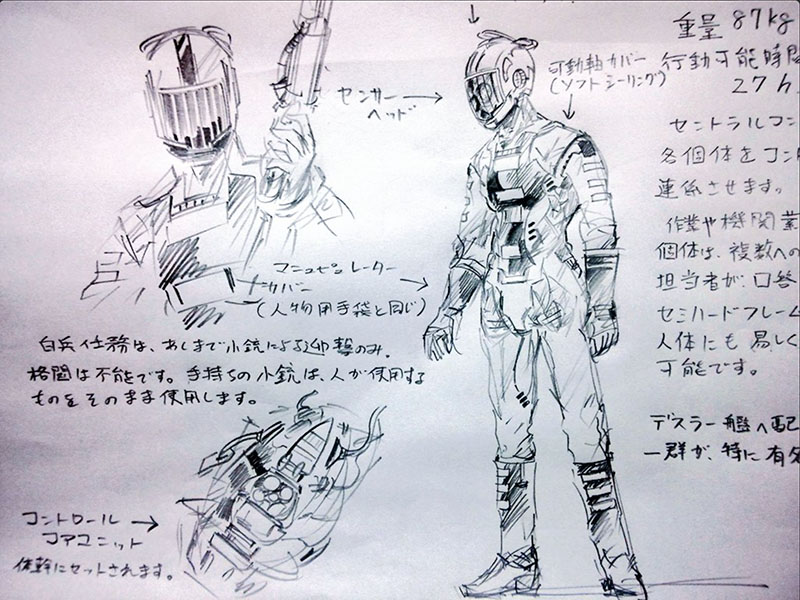 重量 87kg
行動可能時間
27h
可動軸カバー
(ソフトシーリング)
センサー
ヘッド
セントラルコン
各個体をコン
連係させます。
作業や機関業
個体は、複数への
担当者が、口答
セミハードフレーム
人体にも易しく
可能です。
マニュピュレーター
カバー
(人物用手袋と同じ)
白兵任務は、あくまで小銃による迎撃のみ。
格闘は不能です。手持ちの小銃は、人が使用する
ものをそのまま使用します。
デスラー艦へ配
一群が、特に有名
コントロール
コアユニット
体幹にセットされます。